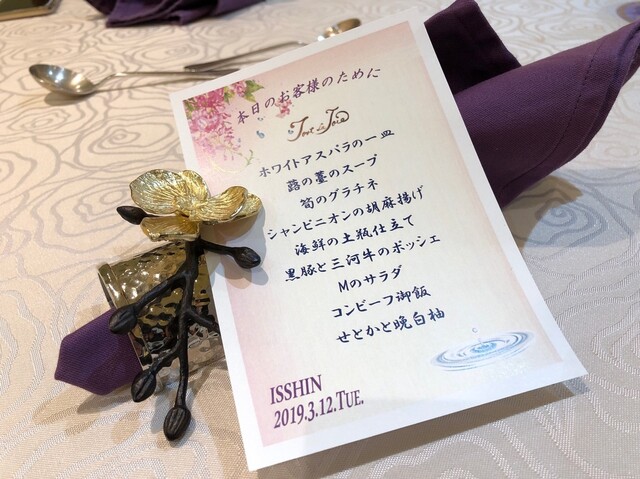 本日のお客様のために
Tout la Joie
ホワイトアスパラの一皿
蕗の薹のスープ
筍のグラチネ
シャンピニオンの胡麻揚げ
海鮮の土瓶仕立て
黒豚と三河牛のポッシェ
Mのサラダ
コンビーフ御飯
せとかと晩白柚
ISSHIN
2019.3.12.TUE.